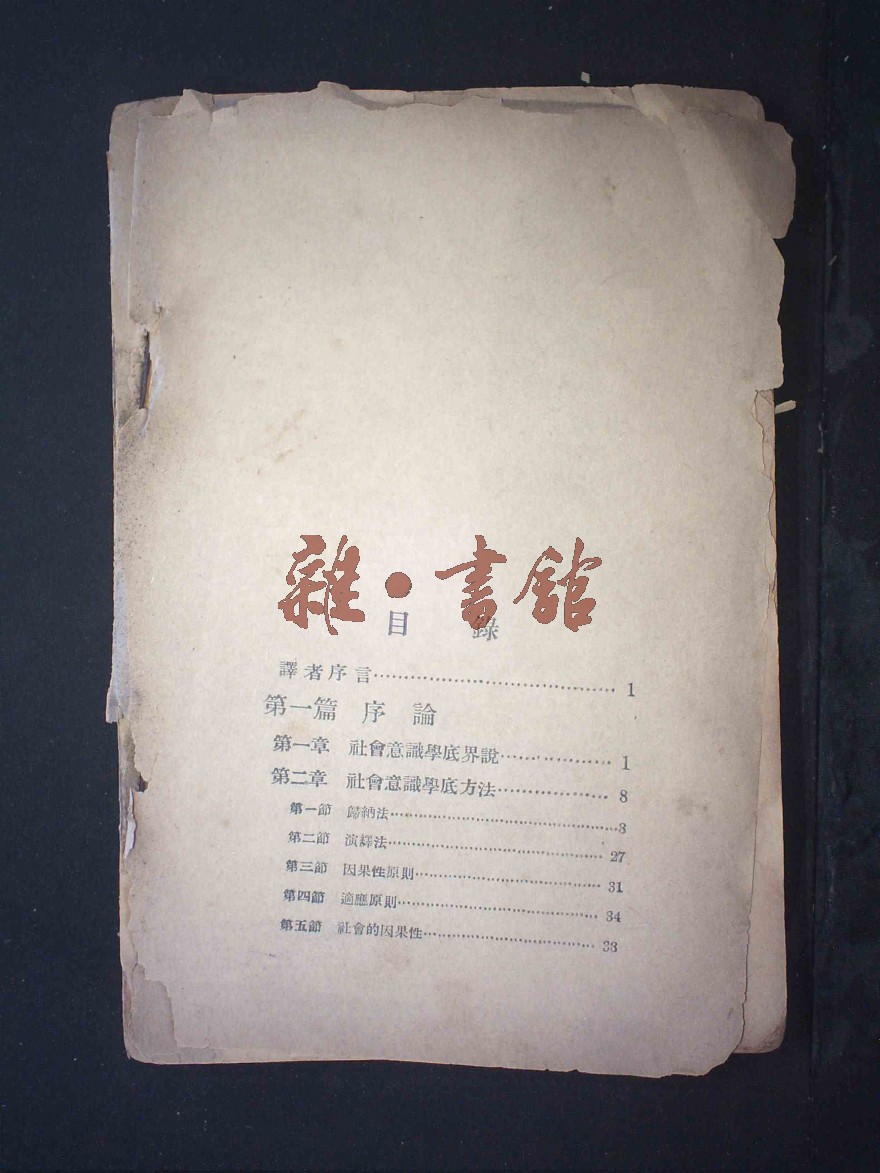 雜·書館
目 錄
譯者序言……………………………………1
第一篇 序 論
第一章 社會意識學底界說………………1
第二章 社會意識學底方法………………8
第一節 歸納法……………………………………8
第二節 演繹法……………………………………27
第三節 因果性原則………………………………31
第四節 適應原則…………………………………34
第五節 社會的因果性……………………………38